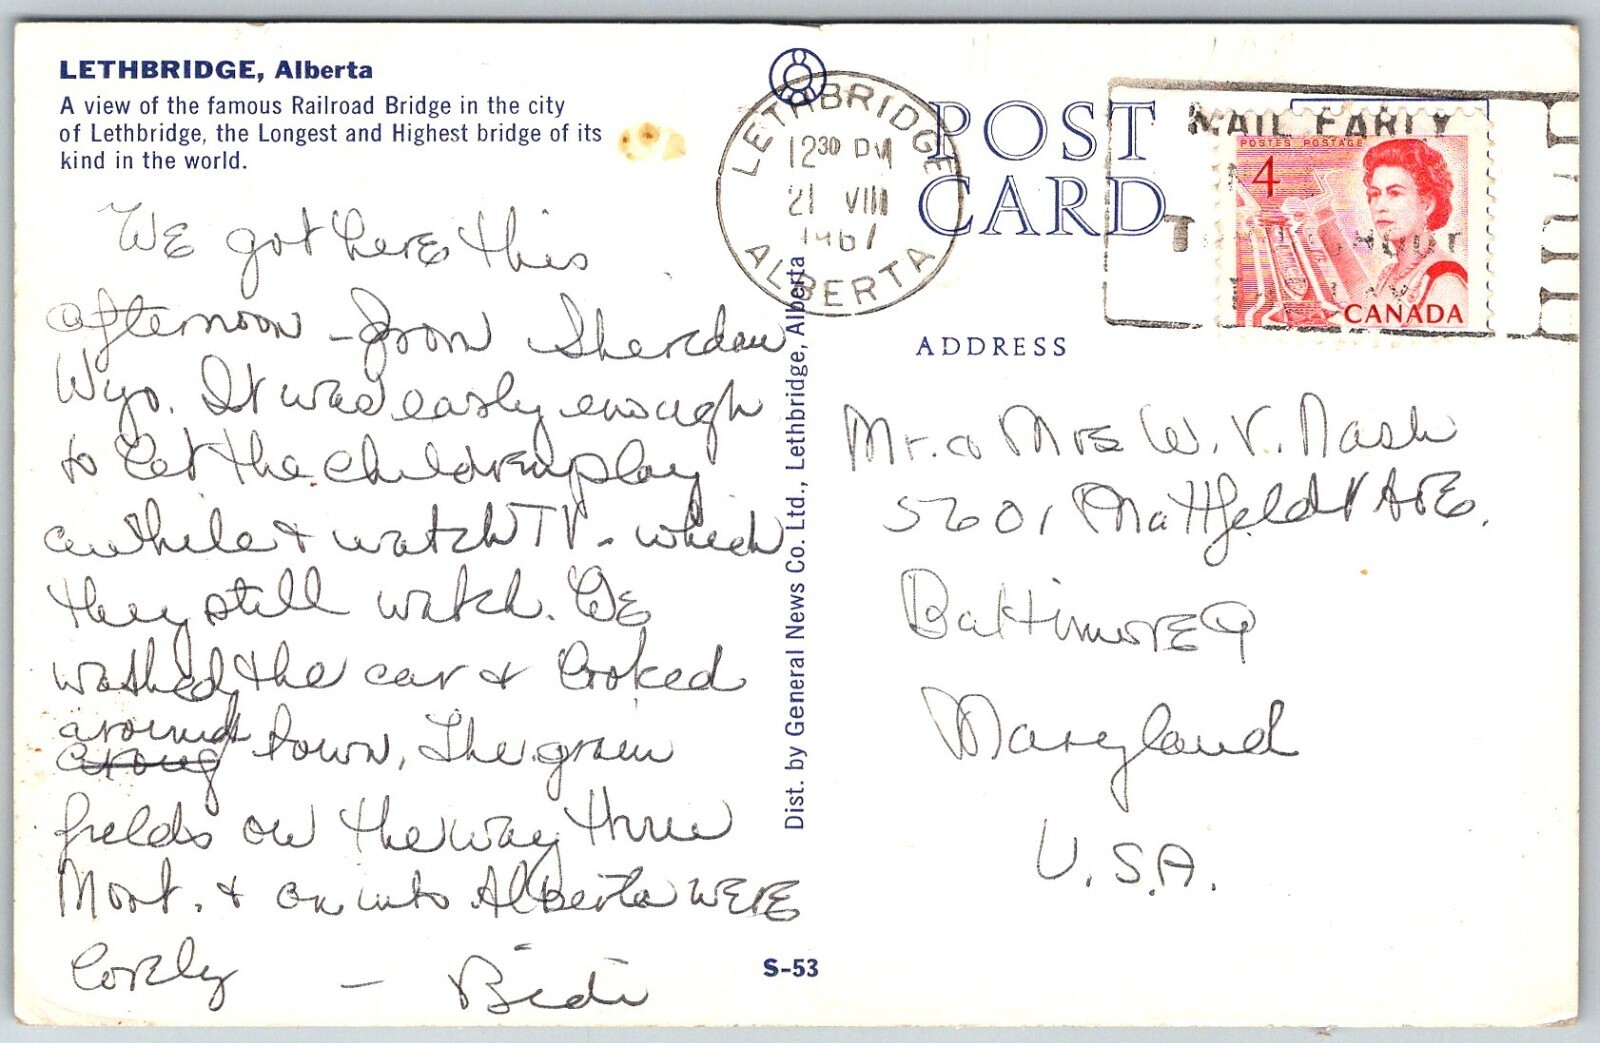 LETHBRIDGE, Alberta
A view of the famous Railroad Bridge in the city
of Lethbridge, the Longest and Highest bridge of its
kind in the world.
WE got here this
afternoon - from Sheridan
Wyo. It was early enough
to let the children play
awhile & watch TV - which
they still watch. WE
washed the car & looked
around
town. The grain
fields on the way thru
Mont. & on into Alberta WERE
lovely - Bidi
S-53
Dist. by General News Co. Ltd., Lethbridge, Alberta
LETHBRIDGE
12 30 PM
21 VIII
1967
ALBERTA
POST
CARD
MAIL EARLY
POSTES POSTAGE
4
CANADA
ADDRESS
Mr. & Mrs W. V. Nash
5601 Mattfeldt AVE.
Baltimore 9
Maryland
U.S.A.